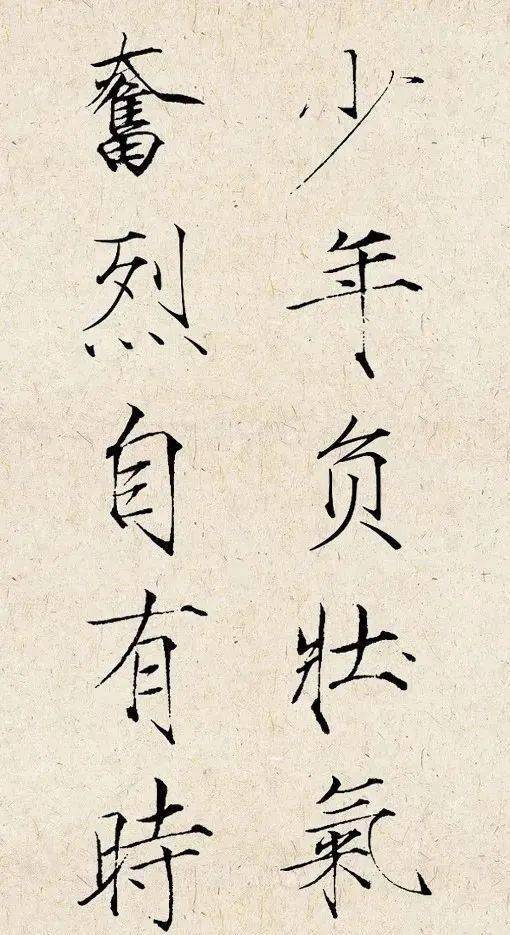 少年负壯氣
奮烈自有時